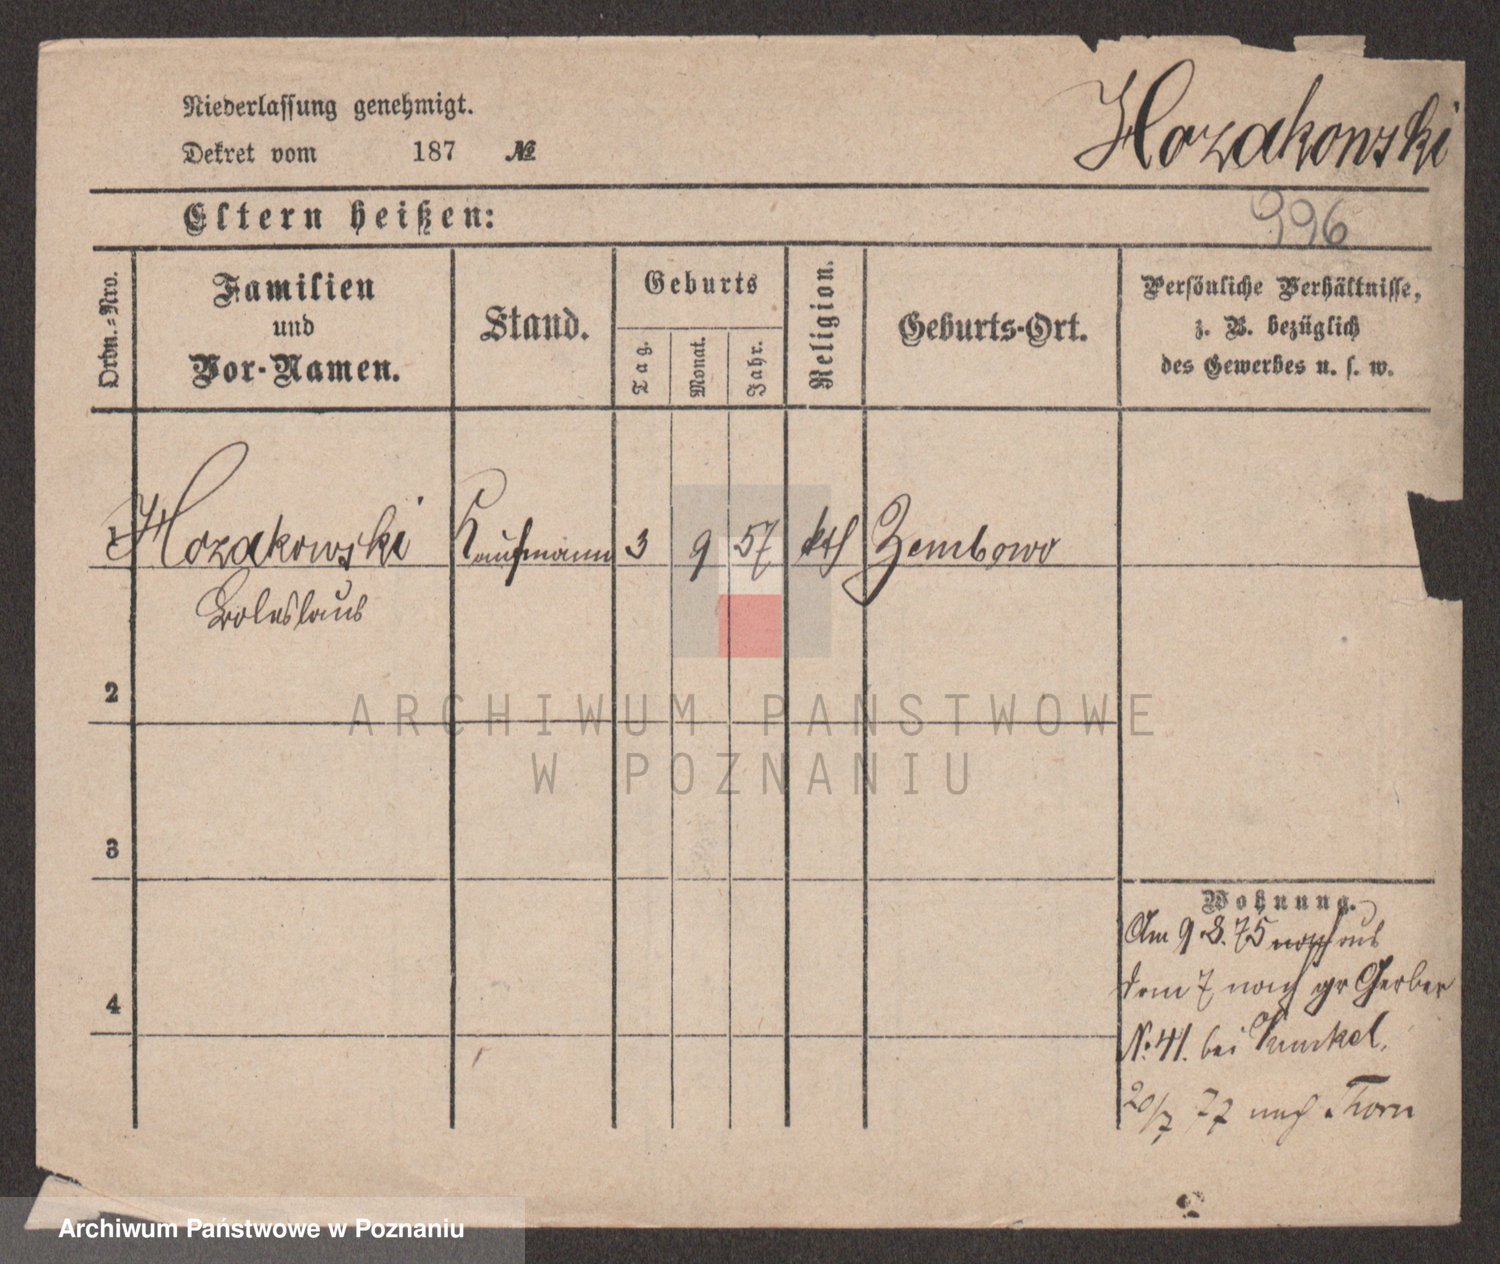 Niederlassung genehmigt.
Hozakowski
Dekret vom 187 №
Eltern heißen:
996
Ordn.-Nro.
Familien
und
Vor-Namen.
Stand.
Geburts
Tag.
Monat.
Jahr.
Religion.
Geburts-Ort.
Persönliche Verhältnisse,
z. B. bezüglich
des Gewerbes u. s. w.
1 Hozakowski Kaufmann 3 9 57 kth Zembowo
Boleslaus
2
3
4
Wohnung.
Am 9 8. 75 aus
dem 7 nach gr Gerber
N: 41. bei Kunkel.
20/7 77 nach Thorn
ARCHIWUM PAŃSTWOWE
W POZNANIU
Archiwum Państwowe w Poznaniu